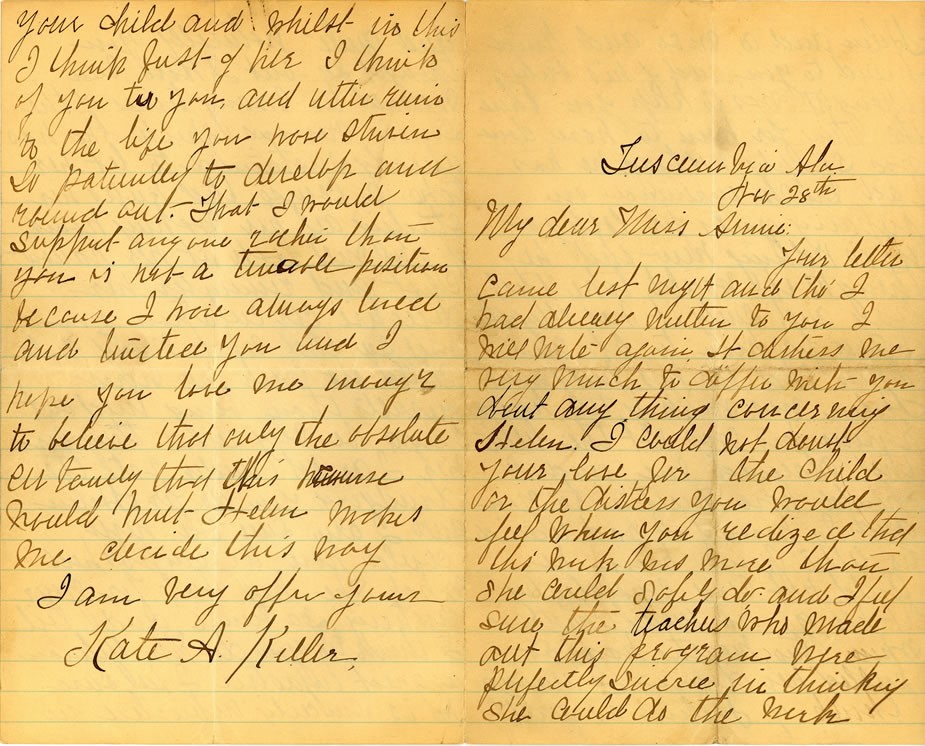 Tuscumbia Ala
Nov 28th
My dear Miss Annie:
Your letter
came last night and tho' I
had already written to you I
will write again. It distress me
very much to differ with you
about any thing concerning
Helen. I could not doubt
your love for the child
or the distress you would
feel when you realized that
this work was more than
she could safely do and I feel
sure the teachers who made
out this program were
perfectly sincere in thinking
she could do the work
your child and whilst in this
I think just of her I think
of you too you, and utter ruin
to the life you have striven
so patiently to develop and
round out. That I would
support anyone rather than
you is not a tenable position
because I have always loved
and trusted you and I
hope you love me enough
to believe that only the absolute
certainty that this
would hurt Helen makes
me decide this way
I am very yours
Kate A. Keller.